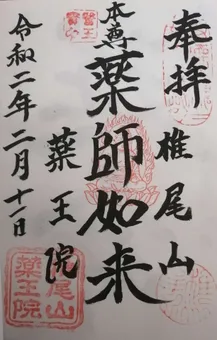 奉拝 椎尾山
本尊 薬師如来
薬王院
令和二年二月十一日
椎尾山
薬王院